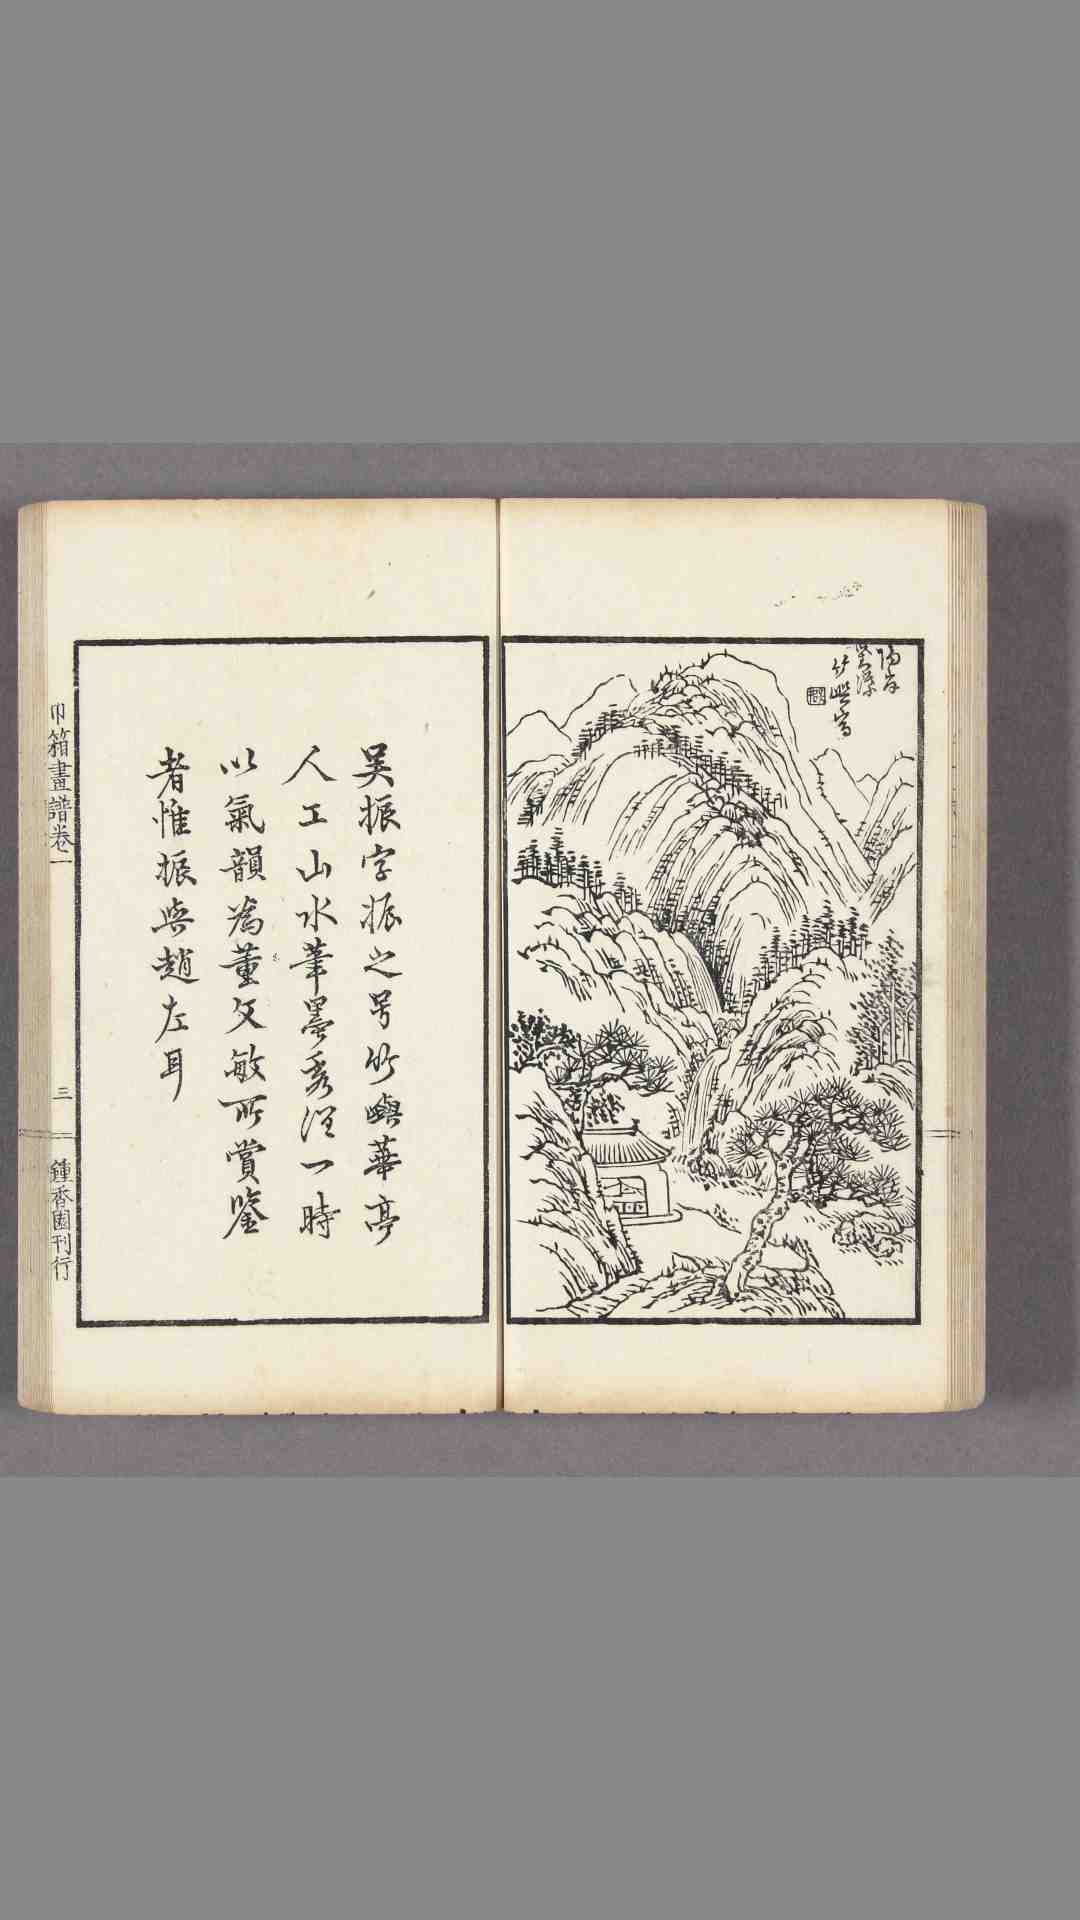 竹嶼寫
吳振字振之号竹嶼華亭
人工山水筆墨秀潤一時
以氣韻為董文敏所賞鑒
者惟振與趙左耳
巾箱畫譜卷一
三
鍾香園刊行